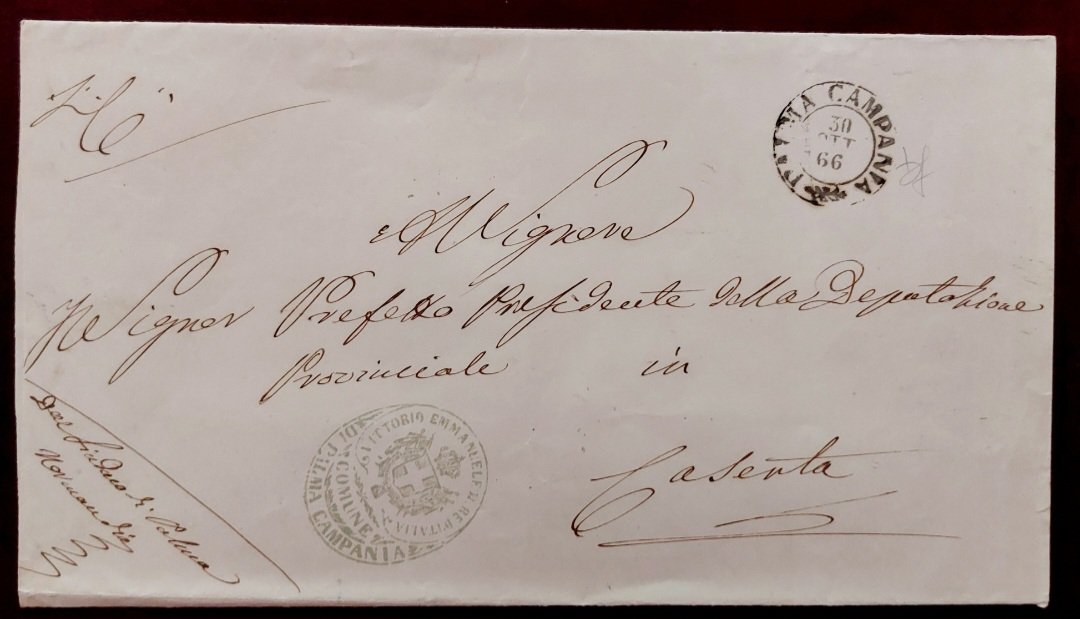 PALMA CAMPANIA
30
OTT
66
Al Signore
Il Signor Prefetto Presidente della Deputazione
Provinciale in
Caserta
Dal Sindaco di Palma
VITTORIO EMMANUELE II RE D'ITALIA
COMUNE
DI PALMA CAMPANIA